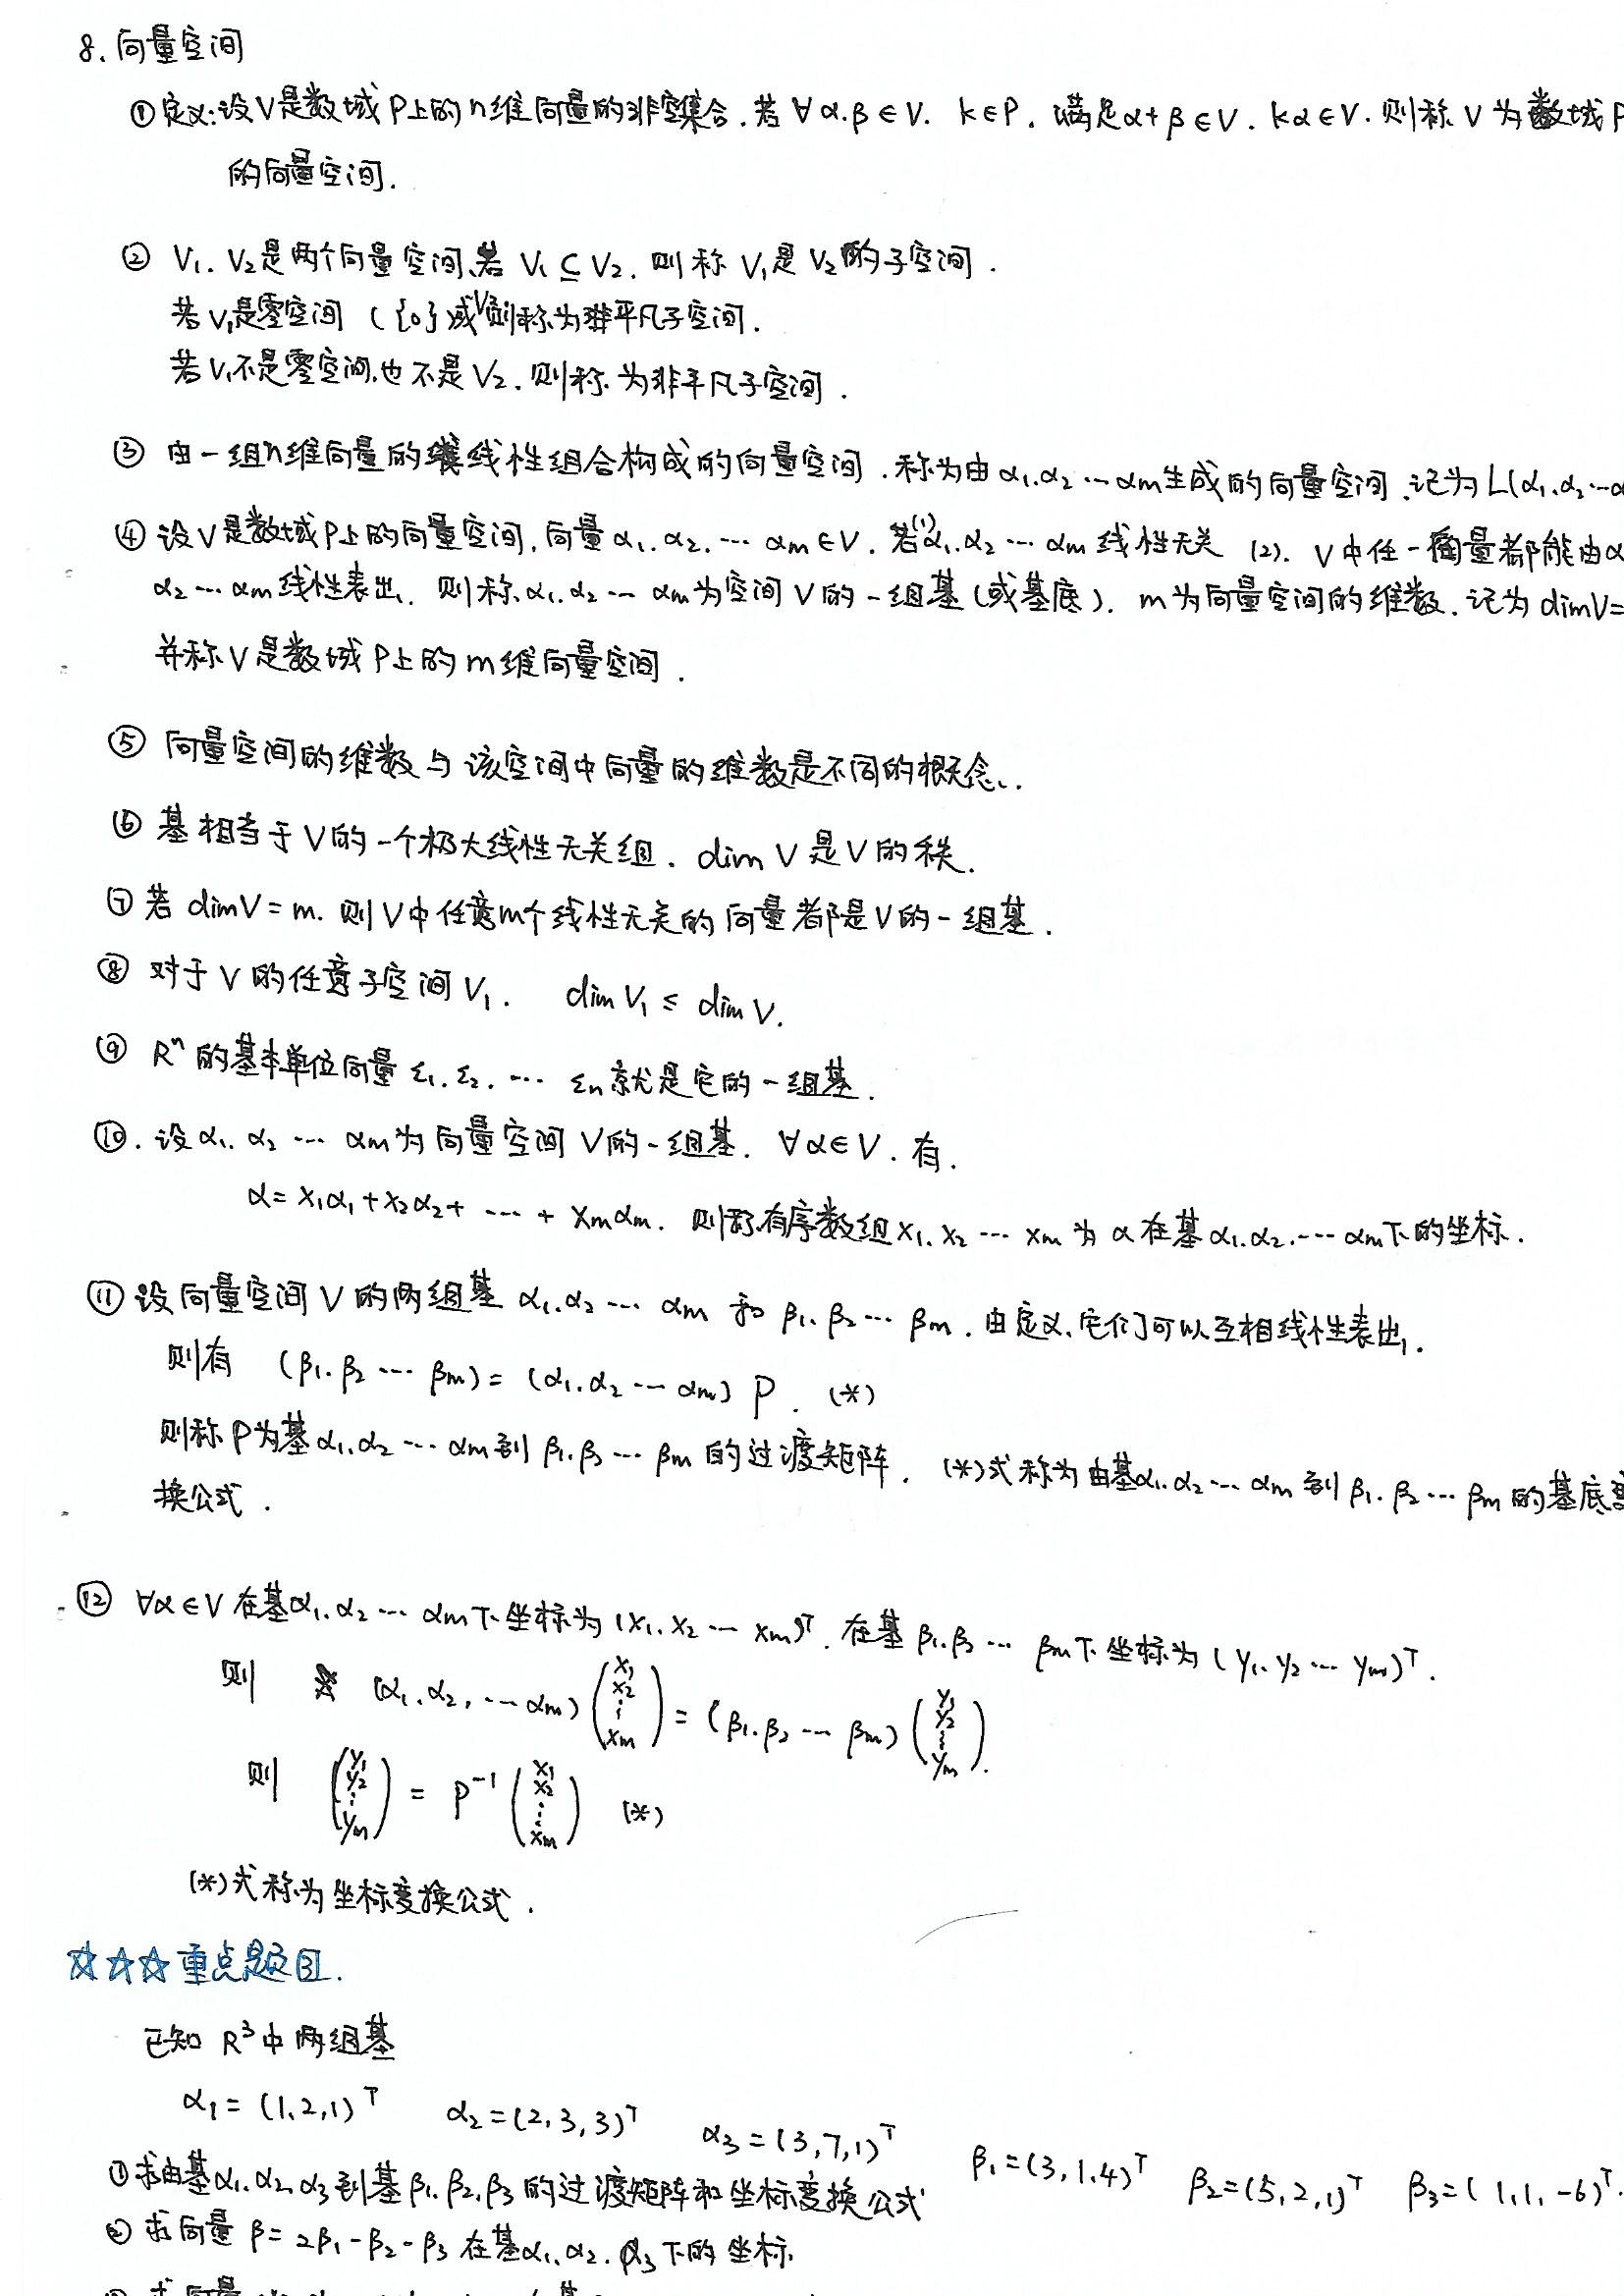 8. 向量空间
① 定义:设V是数域P上的n维向量的非空集合.若 ∀α.β∈V. k∈P. 满足α+β∈V. kα∈V.则称 V 为数域P
的向量空间.
② V₁. V₂是两个向量空间,若 V₁⊆V₂. 则称 V₁是 V₂的子空间.
若V₁是零空间 ({0})或V₂则称为平凡子空间.
若V₁不是零空间,也不是V₂.则称为非平凡子空间.
③ 由一组n维向量的线性组合构成的向量空间.称为由α₁.α₂…αm生成的向量空间.记为L(α₁.α₂…α
④ 设V是数域P上的向量空间,向量α₁.α₂.…αm∈V.若(1)α₁.α₂…αm线性无关 (2). V中任一向量都能由α
α₂…αm线性表出. 则称α₁.α₂…αm为空间V的一组基(或基底). m为向量空间的维数.记为dimV=
并称V是数域P上的m维向量空间.
⑤ 向量空间的维数与该空间中向量的维数是不同的概念.
⑥ 基相当于V的一个极大线性无关组. dim V 是V的秩.
⑦ 若 dimV=m. 则V中任意m个线性无关的向量都是V的一组基.
⑧ 对于V的任意子空间V₁. dim V₁ ≤ dim V.
⑨ Rⁿ的基本单位向量 ε₁.ε₂.… εn就是它的一组基.
⑩. 设α₁.α₂…αm为向量空间V的一组基. ∀α∈V.有.
α=x₁α₁+x₂α₂+…+xmαm. 则称有序数组x₁.x₂…xm为α在基α₁.α₂.…αm下的坐标.
⑪ 设向量空间V的两组基 α₁.α₂…αm 和 β₁.β₂…βm.由定义,它们可以互相线性表出.
则有 (β₁.β₂…βm)=(α₁.α₂…αm) P. (*)
则称P为基α₁.α₂…αm到β₁.β₂…βm的过渡矩阵. (*)式称为由基α₁.α₂…αm到β₁.β₂…βm的基底变
换公式.
⑫ ∀α∈V在基α₁.α₂…αm下坐标为(x₁.x₂…xm)ᵀ.在基β₁.β₂…βm下坐标为(y₁.y₂…ym)ᵀ.
则 (α₁.α₂,…αm)(x₁ x₂ ⋮ xm)=(β₁.β₂…βm)(y₁ y₂ ⋮ ym).
则 (y₁ y₂ ⋮ ym) = P⁻¹ (x₁ x₂ ⋮ xm) (*)
(*)式称为坐标变换公式.
☆☆☆重点题目.
已知 R³中两组基
α₁=(1,2,1)ᵀ α₂=(2,3,3)ᵀ α₃=(3,7,1)ᵀ β₁=(3,1,4)ᵀ β₂=(5,2,1)ᵀ β₃=(1,1,-6)ᵀ.
① 求由基α₁.α₂.α₃到基β₁.β₂.β₃的过渡矩阵和坐标变换公式
② 求向量 β=2β₁-β₂-β₃在基α₁.α₂.α₃下的坐标.